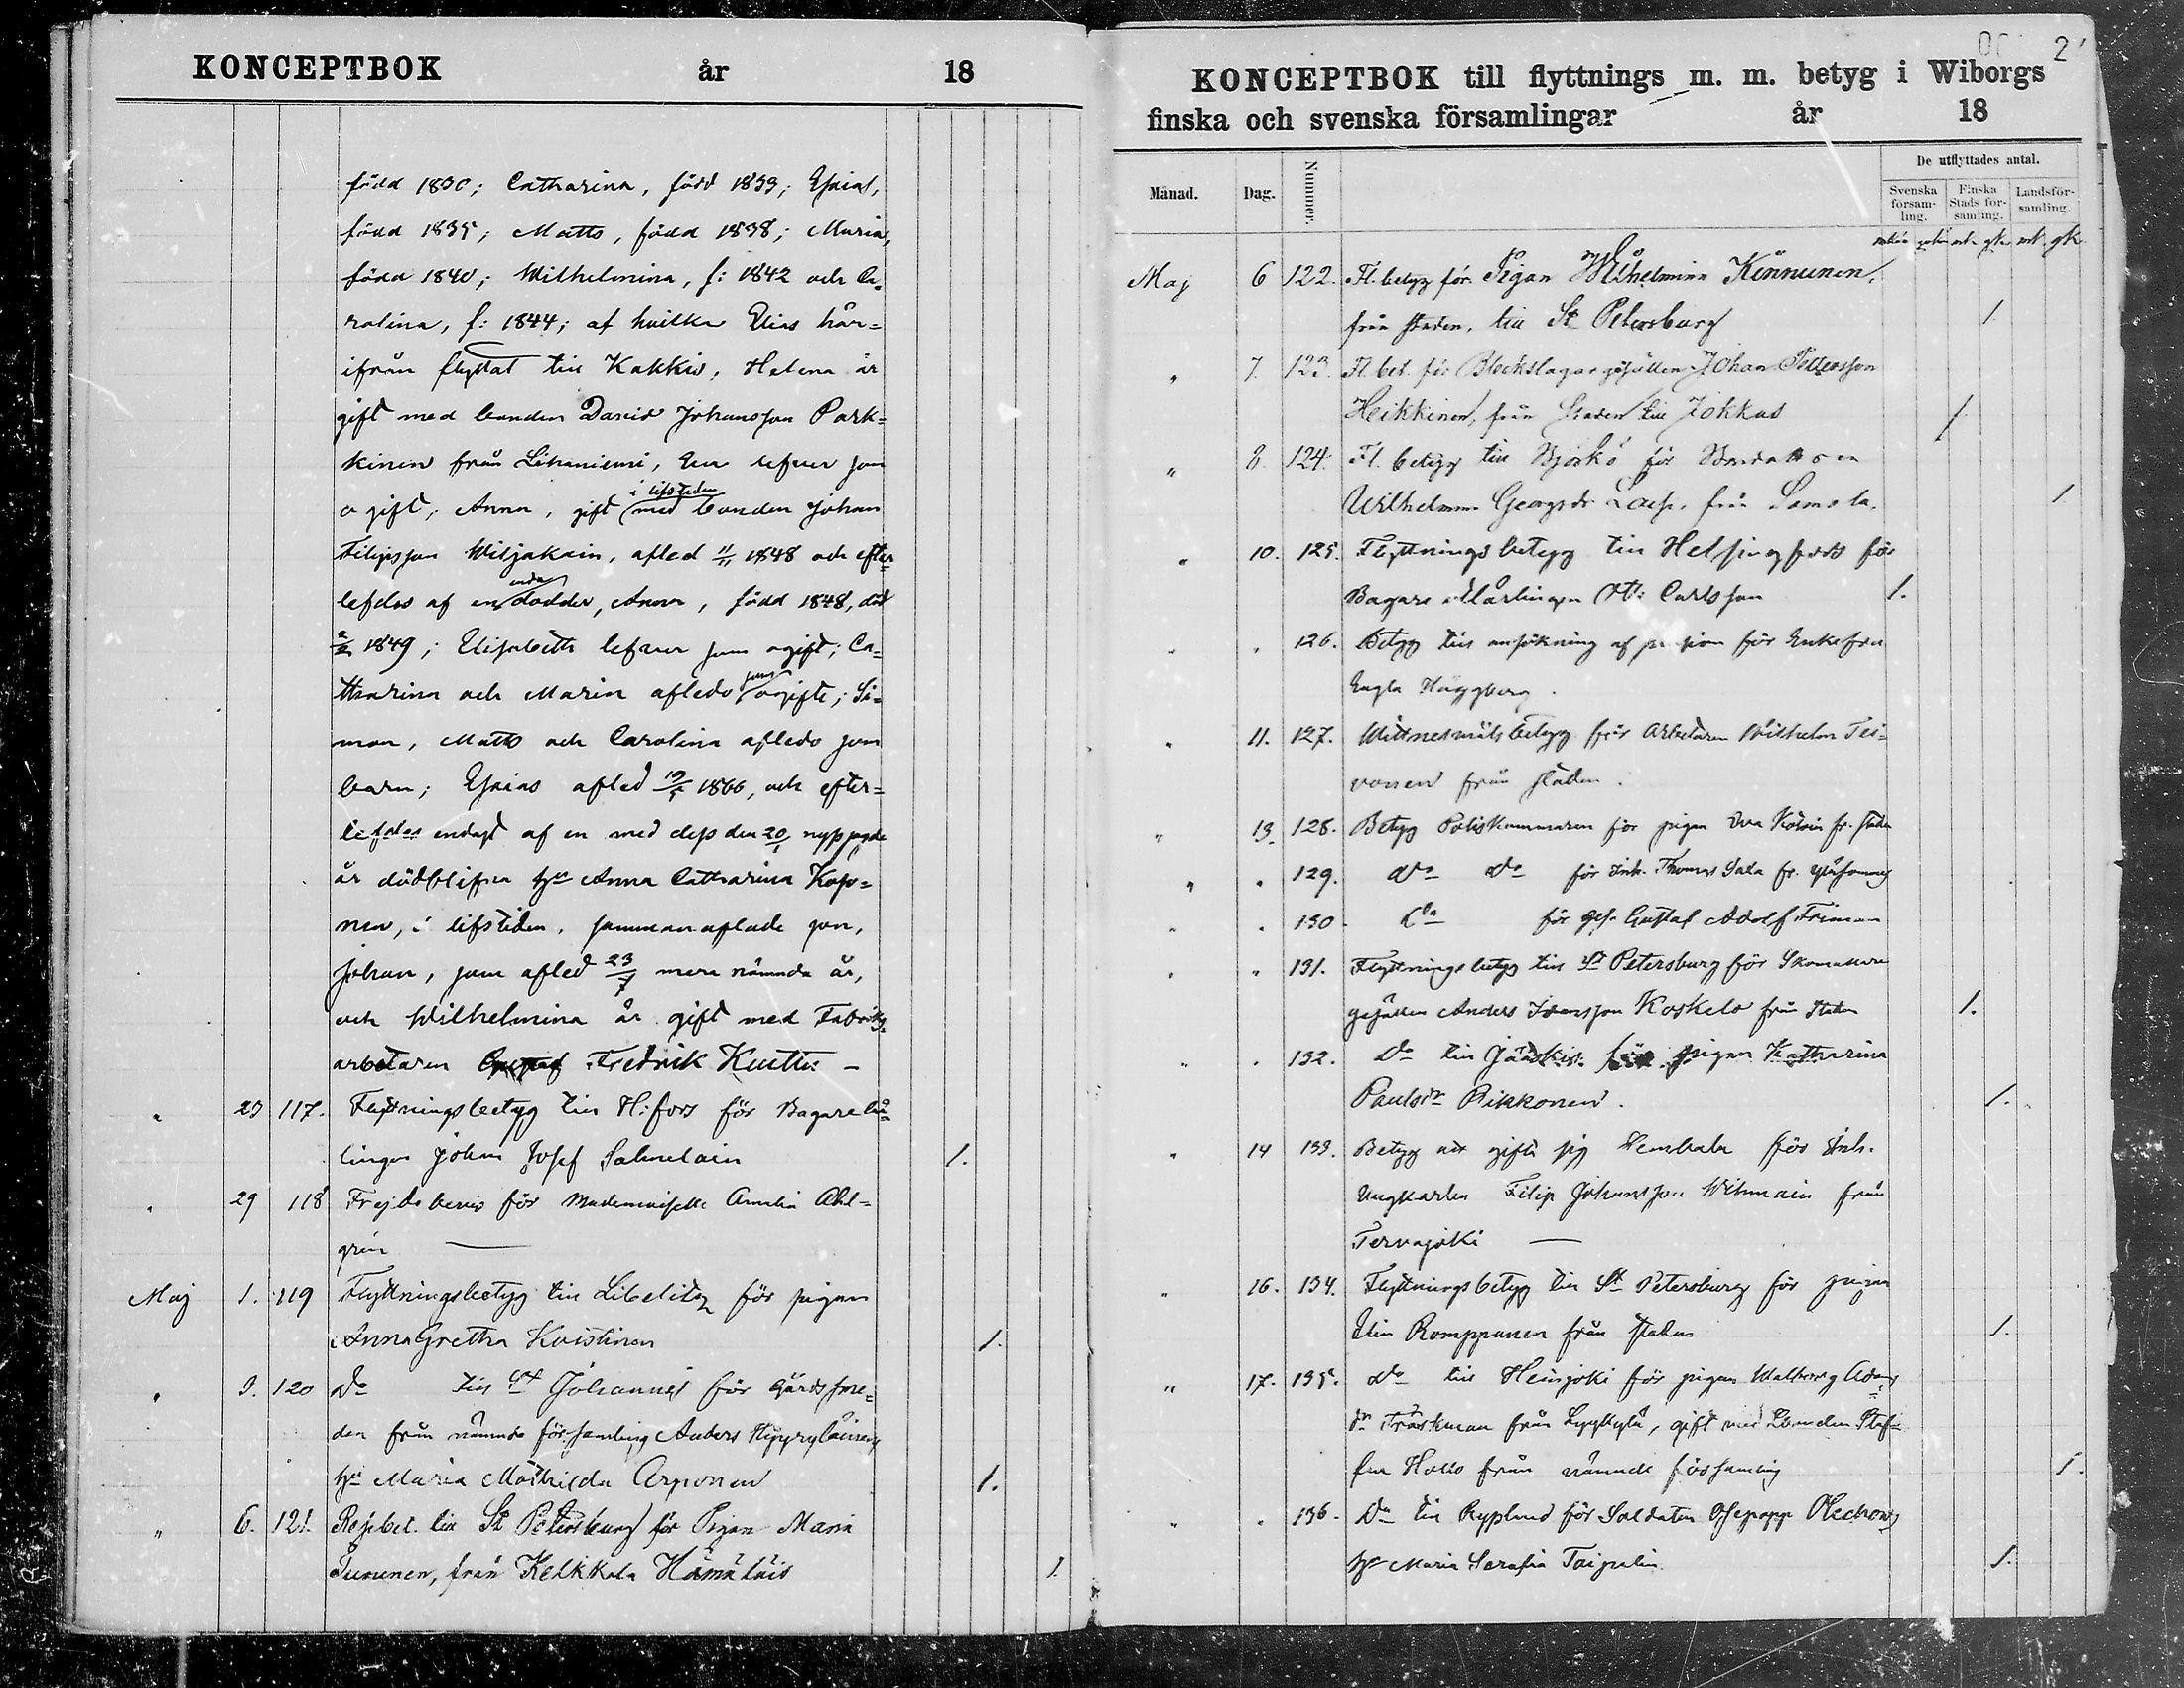 KONCEPTBOK år 18
född 1830; Catharina, född 1833; Esaias,
född 1835; Matts, född 1838; Maria,
född 1840; Wilhelmina, f: 1842 och Ca-
rolina, f: 1844; af hvilka Elias här-
ifrån flyttat till Kakkis, Helena är
gift med bonden David Johansson Park-
kinen från Lihaniemi, Eva lefver som
ogift, Anna, gift i lifstiden med bonden Johan
Filipsson Wiljakain, afled 1848 och efter-
lefdes af en enda dotter, Anna, född 1848, död
1849; Elisabeth lefver som ogift; Ca-
tharina och Maria afledo som ogifte; Si-
mon, Matts och Carolina afledo som
barn; Esaias afled 1866, och efter-
lefdes endast af en med dess den nyss sagde
år dödblifna h:u Anna Catharina Kopo-
nen, i lifstiden, sammanaflade son,
Johan, som afled 23/7 mera nämnda år,
och Wilhelmina är gift med Fabriks-
arbetaren Fredrik Kuttu —
" 23 117. Flyttningsbetyg till H:fors för Bagarelär-
lingen Johan Josef Salmelain 1.
" 29 118 Frejdebevis för Mademoiselle Amelia Ahl-
grén —
Maj 1. 119 Flyttningsbetyg till Libelitz för pigan
Anna Gretha Kvistinen 1.
" 3. 120 D:o till S:t Johannes för Gårds
den från nämnda församling Anders Hyyryläinens
h:u Maria Mathilda Arponen 1.
" 6. 121. till St Petersburg för Pigan Maria
Turunen, från Kelkkala Hämäläis 1
2
KONCEPTBOK till flyttnings m. m. betyg i Wiborgs
finska och svenska församlingar år 18
Månad. Dag. Nummer. De utflyttades antal.
Svenska församling. Finska Stads församling. Landsförsamling.
Maj 6 122. Fl. betyg för Pigan Wilhelmina Kinnunen,
från staden, till St Petersburg 1
" 7. 123. Fl. bet. för Bleckslagaregesällen Johan Pettersson
Heikkinen, från Staden till Jokkas 1
" 8. 124. Fl. betyg till Björkö för
Wilhelmina Georgsdr från Samola. 1
" 10. 125. Flyttningsbetyg till Helsingfors för
Bagare Carlsson 1.
" " 126. Betyg till ansökning af pension för Enkefru
Engla Häggberg.
" 11. 127. Wittnesmålsbetyg för Arbetaren Wilhelm Tei-
vonen från staden.
" 13. 128. Betyg Poliskammaren för pigan Eva fr. staden
" " 129. D:o D:o för Inh. Thomas Sala fr.
" " 130. D:o för ges. Gustaf Adolf Friman
" " 131. Flyttningsbetyg till S:t Petersburg för Skomakare
gesällen Anders Johansson Koskelo från Staden 1.
" " 132. D:o till Jääskis för pigan Katharina
Paulsdr Pikkonen. 1.
" 14 133. Betyg att gifta sig för Inh.
Ungkarlen Filip Johansson Wihmain från
Tervajoki —
" 16. 134. Flyttningsbetyg till S:t Petersburg för pigan
Elin Romppanen från staden 1.
" 17. 135. D:o till Heinjoki för pigan Walborg Adams
dr Träskman från Lyykylä, gift med Bonden Staf-
fan Hollo från nämnde församling 1.
" " 136. D:o till Ryssland för Soldaten Osepapp Olechows
h:u Maria Serafia Taipulin 1.